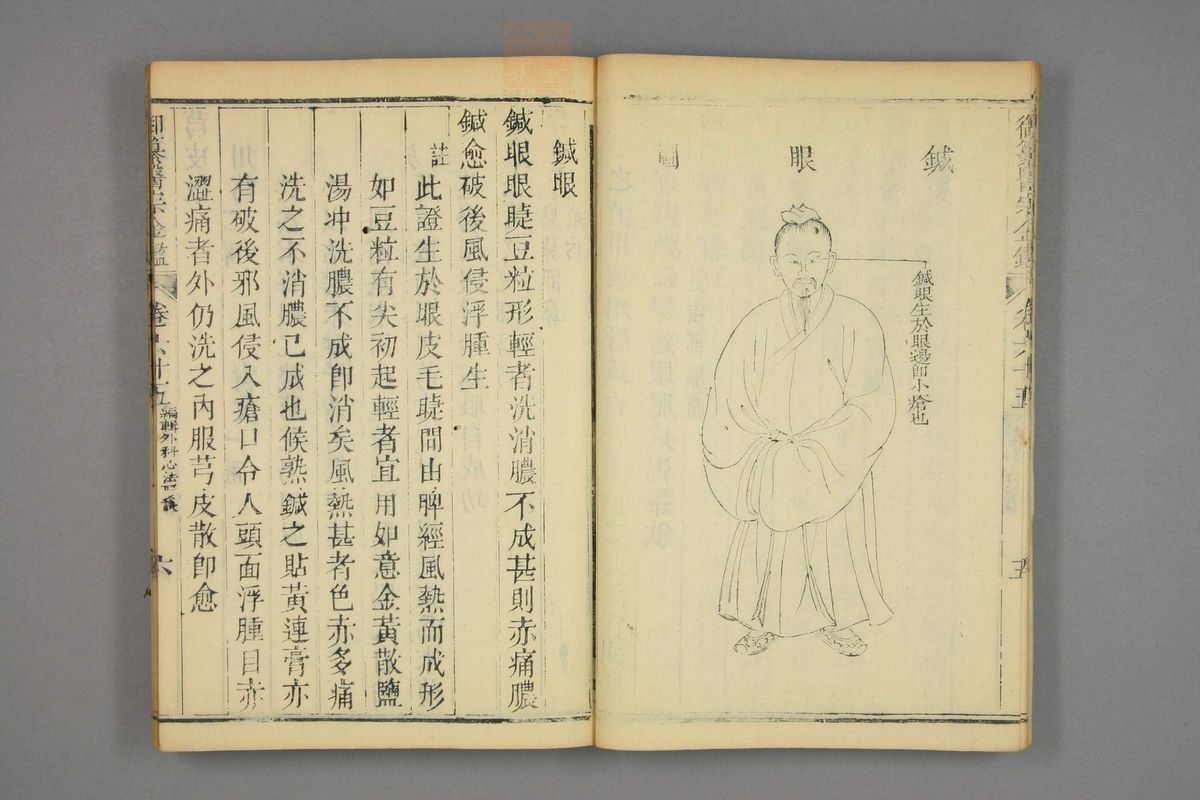 鍼
眼
圖
鍼眼生於眼邊卽小瘡也
卷六十五
五
鍼眼
鍼眼眼睫豆粒形輕者洗消膿不成甚則赤痛膿
鍼愈破後風侵浮腫生
註
此證生於眼皮毛睫間由脾經風熱而成形
如豆粒有尖初起輕者宜用如意金黃散鹽
湯冲洗膿不成卽消矣風熱甚者色赤多痛
洗之不消膿已成也候熟鍼之貼黃連膏亦
有破後邪風侵入瘡口令人頭面浮腫目赤
澀痛者外仍洗之內服芎皮散卽愈
御纂醫宗金鑑
卷六十五
編輯外科心法要訣
六